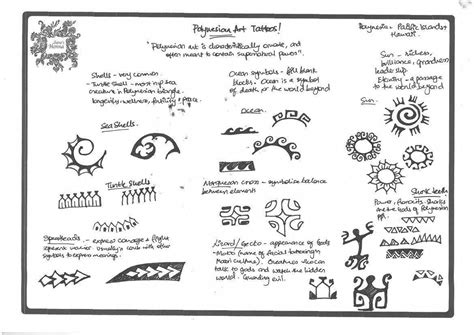 Polynesian Art Tattoos!
"Polynesian art is characteristically ornate, and
often meant to contain supernatural powers".
Polynesia - Pacific Islands +
Hawaii.
Shells - very common.
Turtle Shell - most
creature in Polynesian triangle.
longevity, wellness, fertility + peace.
Ocean symbols - fill blank
blocks. Ocean is a symbol
of death, for the world beyond
Sun - riches,
brilliance, grandness
leadership
Eternity - a passage
to the world beyond
Sea Shells
Ocean.
Sun.
Turtle Shells
Marquesan cross - symbolise balance
between elements
Shark teeth
Power, ferocity. Sharks
are the gods of Polynesian
ppl.
Spearheads - express courage + fight
represent warrior. Usually with other
symbols to express meanings.
Lizard / Gecko - appearance of Gods
- Moko (name of facial tattooing in
Maori culture). Creatures who can
talk to gods and watch the hidden
world. Guarding evil.